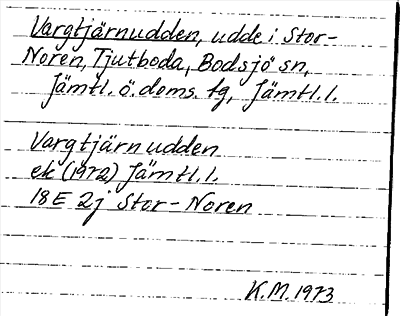 Vargtjärnudden, udde i Stor-
Noren, Tjutboda, Bodsjö sn,
Jämtl. ö. doms. tg, Jämtl. l.
Vargtjärnudden
ek (1972) Jämtl. l.
18 E 2j Stor-Noren
K.M. 1973